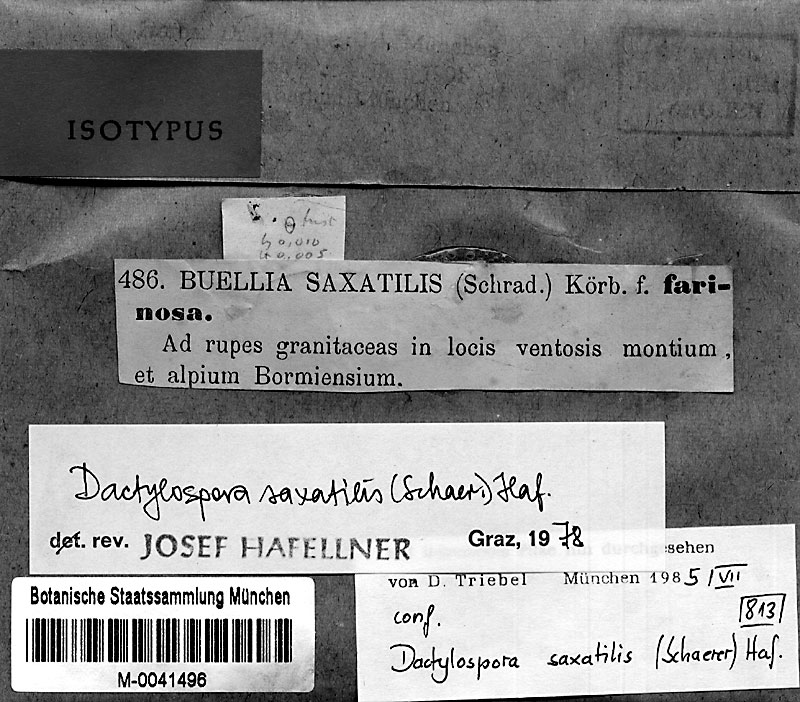 ISOTYPUS
fusc
h 0,010
lt 0.005
486. BUELLIA SAXATILIS (Schrad.) Körb. f. fari-
nosa.
Ad rupes granitaceas in locis ventosis montium,
et alpium Bormiensium.
Dactylospora saxatilis (Schaer.) Haf.
det. rev. JOSEF HAFELLNER Graz, 1978
durchgesehen
von D. Triebel München 1985/VII
conf. 813
Dactylospora saxatilis (Schaerer) Haf.
Botanische Staatssammlung München
M-0041496